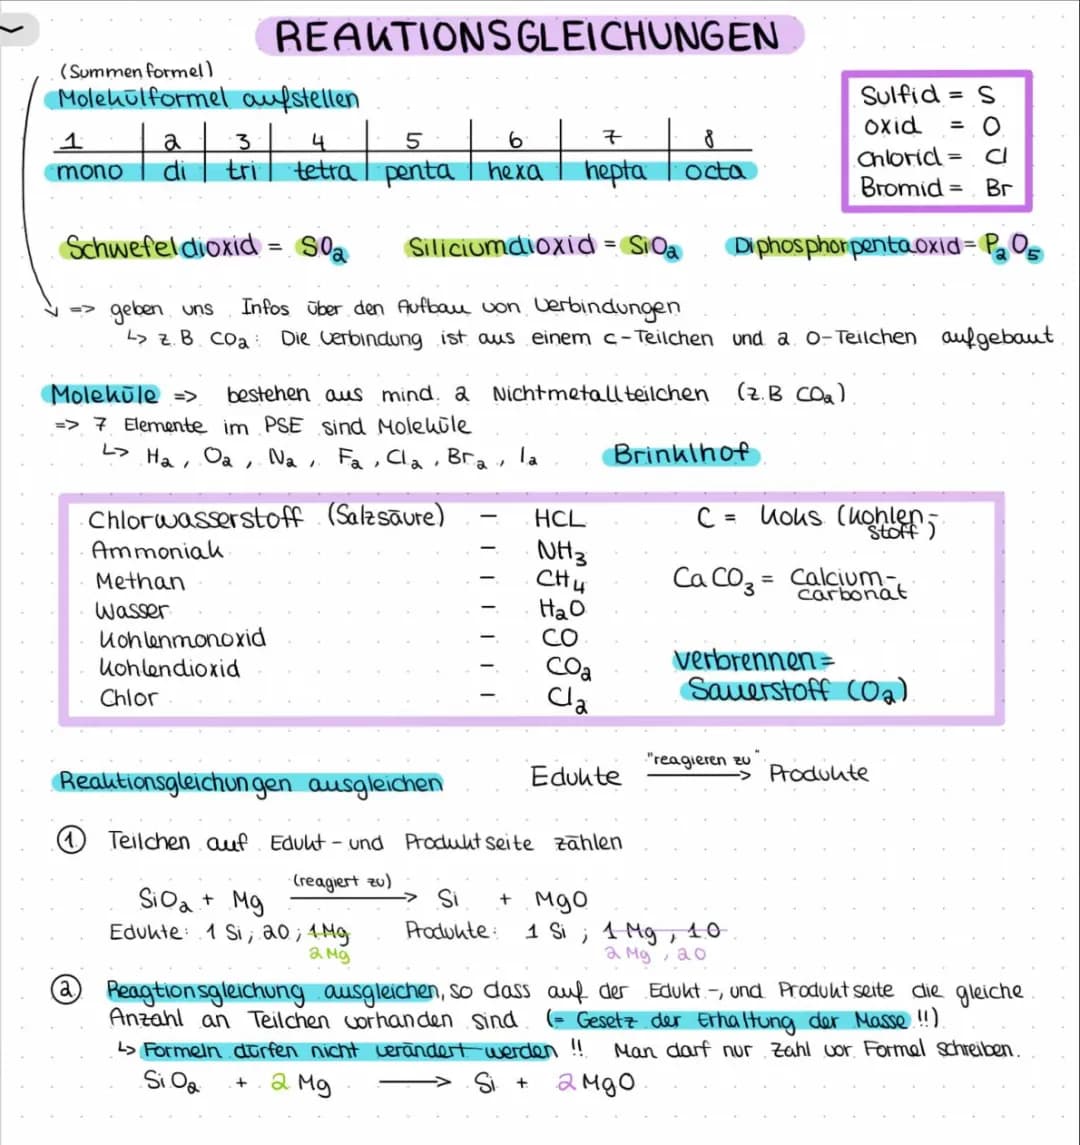 REAKTIONSGLEICHUNGEN
(Summenformel)
Molekülformel aufstellen
1 2 3 4 5 6 7 8
mono di tri tetra penta hexa hepta octa
Sulfid = S
oxid = O
Chlorid = Cl
Bromid = Br
Schwefeldioxid = SO₂ Siliciumdioxid = SiO₂ Diphosphorpentaoxid = P₂O₅
=> geben uns Infos über den Aufbau von Verbindungen
↳ z.B. CO₂: Die Verbindung ist aus einem C-Teilchen und 2 O-Teilchen aufgebaut
Moleküle => bestehen aus mind. 2 Nichtmetallteilchen (z.B CO₂)
=> 7 Elemente im PSE sind Moleküle
↳ H₂, O₂, N₂, F₂, Cl₂, Br₂, I₂ Brinklhof
Chlorwasserstoff (Salzsäure) - HCL
Ammoniak - NH₃
Methan - CH₄
Wasser - H₂O
Kohlenmonoxid - CO
Kohlendioxid - CO₂
Chlor - Cl₂
C = Koks (Kohlen-
stoff)
CaCO₃ = Calcium-
carbonat
verbrennen =
Sauerstoff (O₂)
Reaktionsgleichungen ausgleichen Edukte "reagieren zu" → Produkte
1. Teilchen auf Edukt- und Produktseite zählen
(reagiert zu)
SiO₂ + Mg → Si + MgO
Edukte: 1 Si; 2O; 1Mg Produkte: 1 Si; 1 Mg, 1O
2 Mg 2 Mg, 2O
2 Reagtionsgleichung ausgleichen, so dass auf der Edukt-, und Produktseite die gleiche
Anzahl an Teilchen vorhanden sind (= Gesetz der Erhaltung der Masse!!)
↳ Formeln dürfen nicht verändert werden!! Man darf nur Zahl vor Formal schreiben.
SiO₂ + 2 Mg → Si + 2 MgO